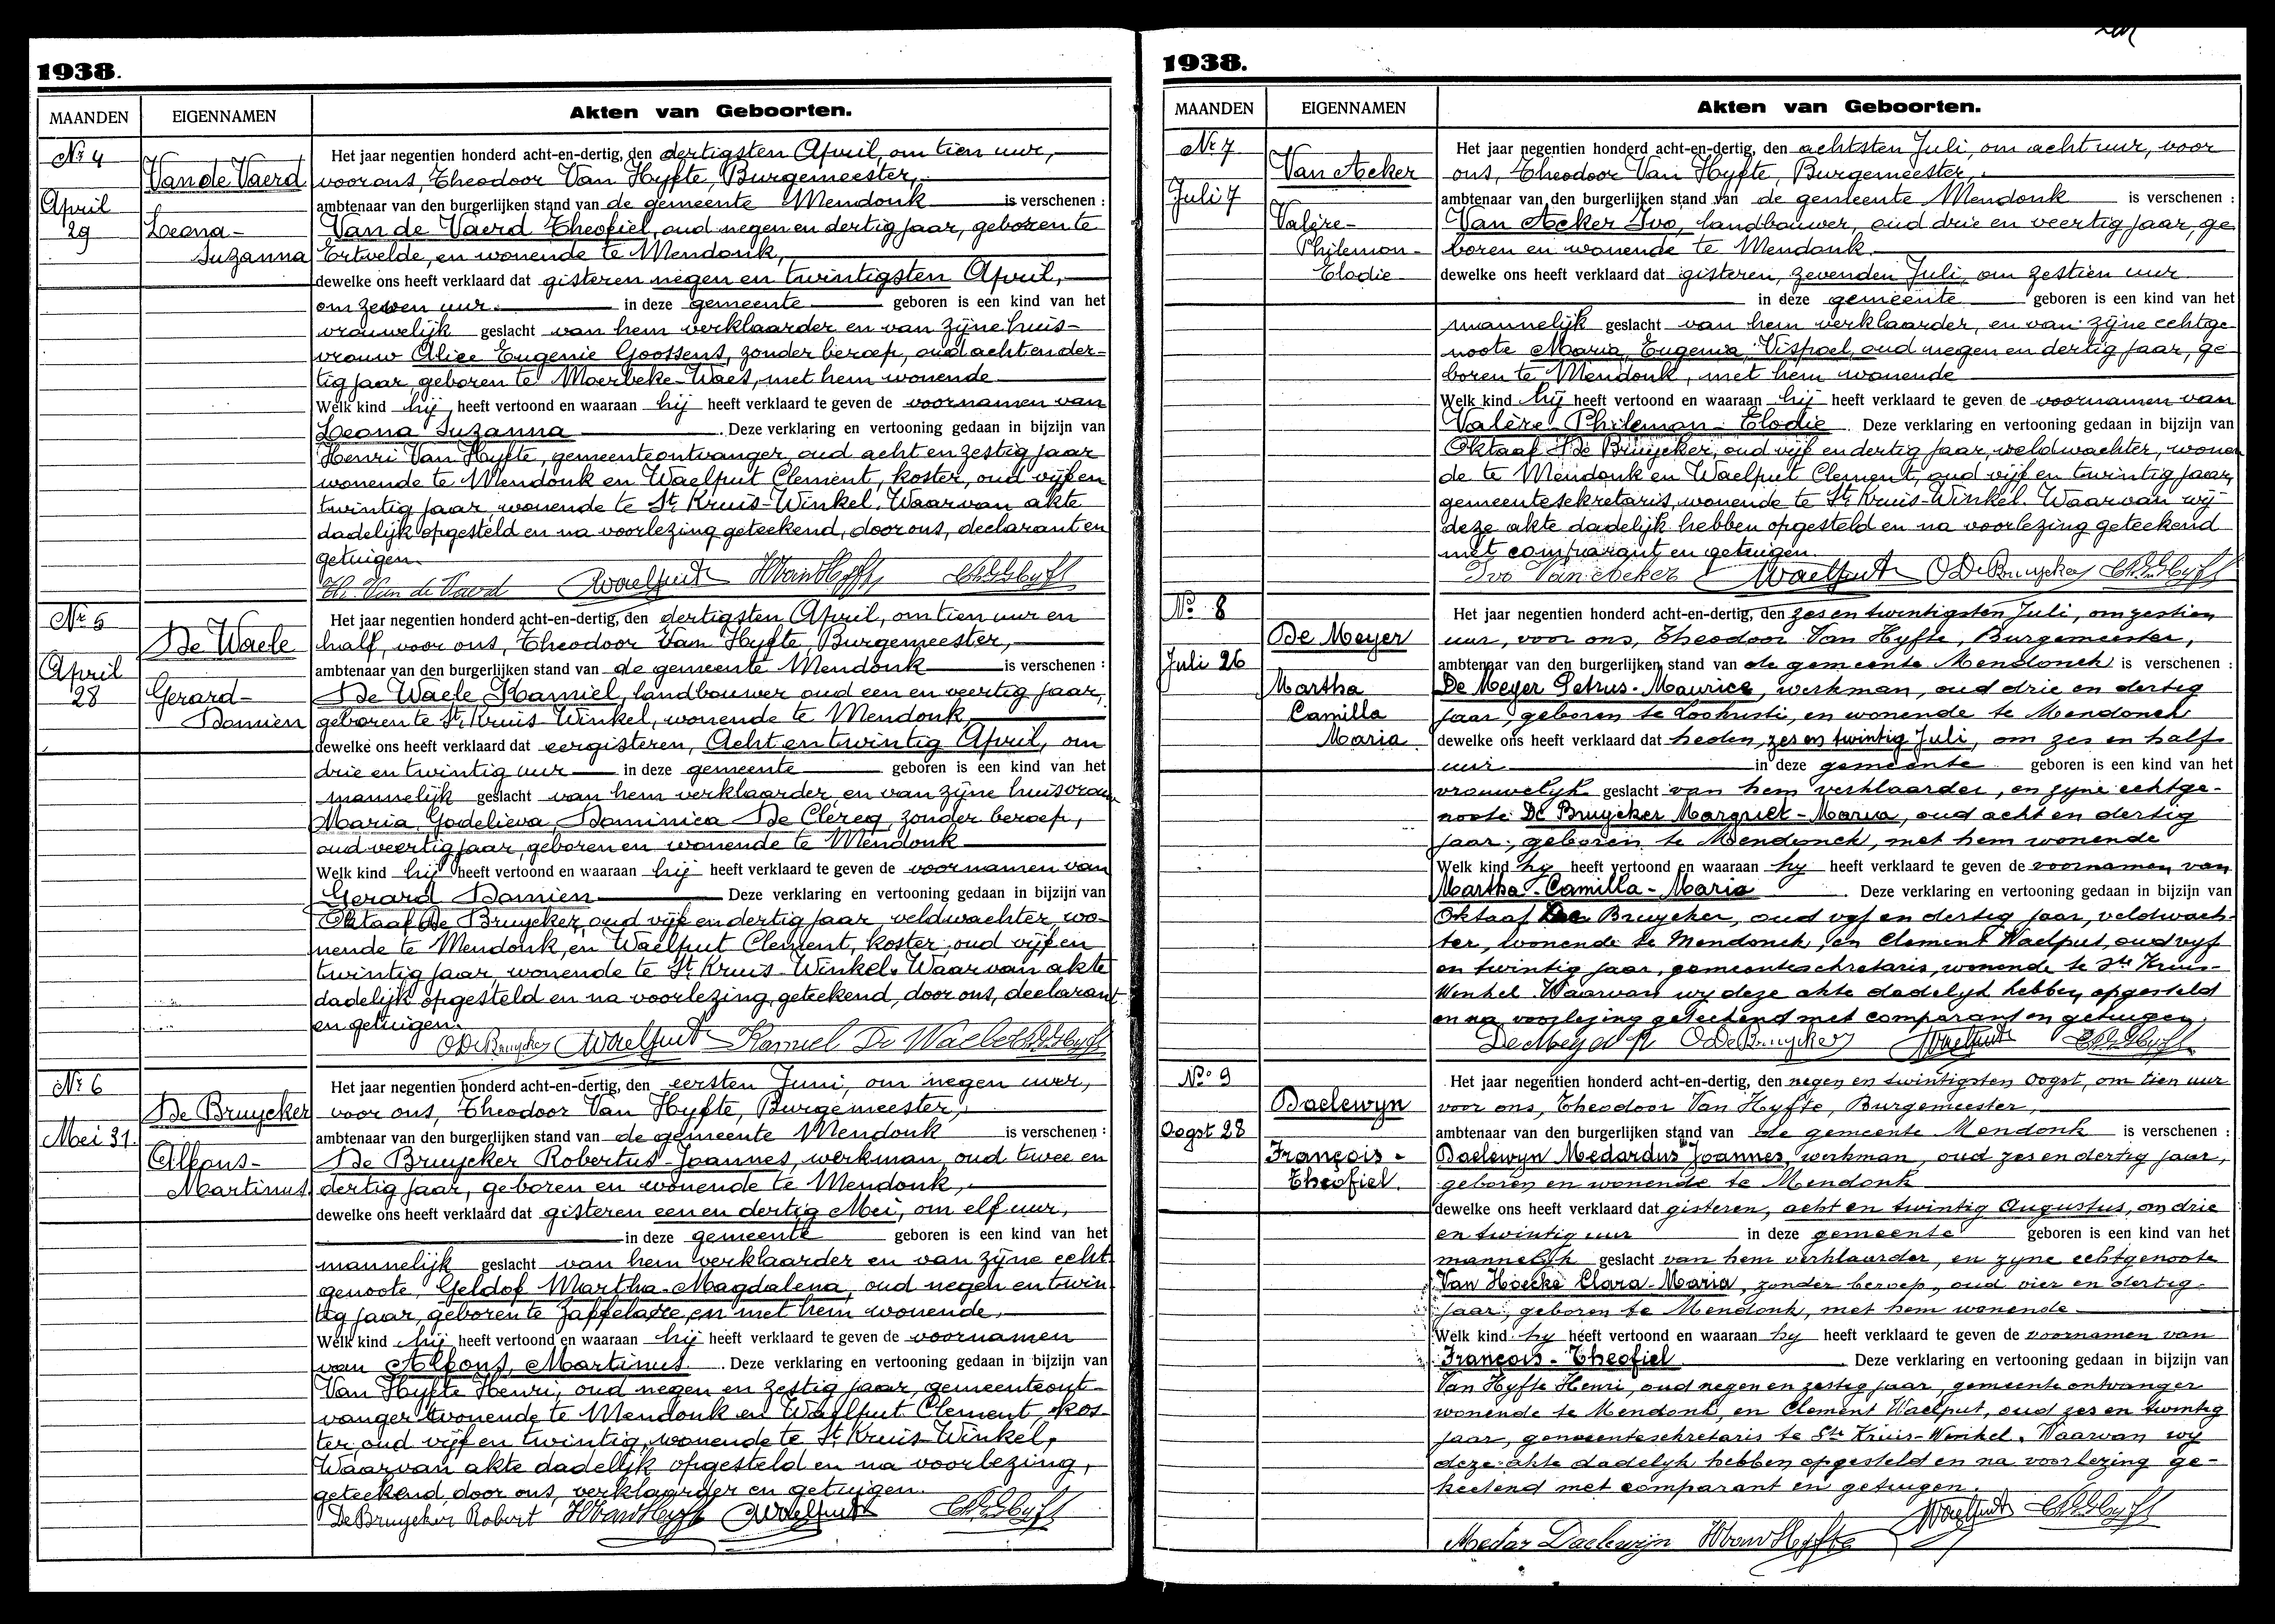 1938.
MAANDEN EIGENNAMEN Akten van Geboorten.
Nr 4
Van de Vaerd
April
29
Leona-
Suzanna
Het jaar negentien honderd acht-en-dertig, den dertigsten April, om tien uur,
voor ons, Theodoor Van Hyfte, Burgemeester,
ambtenaar van den burgerlijken stand van de gemeente Mendonk is verschenen :
Van de Vaerd Theofiel, oud negen en dertig jaar, geboren te
Ertvelde, en wonende te Mendonk,
dewelke ons heeft verklaard dat gisteren negen en twintigsten April,
om zeven uur. in deze gemeente geboren is een kind van het
vrouwelijk geslacht van hem verklaarder en van zijne huis-
vrouw Alice Eugenie Goossens, zonder beroep, oud acht en der-
tig jaar, geboren te Moerbeke-Waes, met hem wonende
Welk kind hij heeft vertoond en waaraan hij heeft verklaard te geven de voornamen van
Leona Suzanna Deze verklaring en vertooning gedaan in bijzijn van
Henri Van Hyfte, gemeenteontvanger, oud acht en zestig jaar
wonende te Mendonk en Waelput Clement, koster, oud vijf en
twintig jaar, wonende te St Kruis-Winkel. Waarvan akte
dadelijk opgesteld en na voorlezing geteekend, door ons, declarant en
getuigen.
Th. Van de Vaerd Waelput HVanHyfte
Nr 5
De Waele
April
28
Gerard-
Damien
Het jaar negentien honderd acht-en-dertig, den dertigsten April, om tien uur en
half, voor ons, Theodoor Van Hyfte, Burgemeester,
ambtenaar van den burgerlijken stand van de gemeente Mendonk is verschenen :
De Waele Kamiel, landbouwer oud een en veertig jaar,
geboren te St Kruis-Winkel, wonende te Mendonk,
dewelke ons heeft verklaard dat eergisteren, Acht en twintig April, om
drie en twintig uur in deze gemeente geboren is een kind van het
mannelijk geslacht van hem verklaarder en van zijne huisvrouw
Maria Godelieva Dominica De Clercq, zonder beroep,
oud veertig jaar, geboren en wonende te Mendonk
Welk kind hij heeft vertoond en waaraan hij heeft verklaard te geven de voornamen van
Gerard Damien Deze verklaring en vertooning gedaan in bijzijn van
Oktaaf De Bruycker, oud vijf en dertig jaar, veldwachter, wo-
nende te Mendonk, en Waelput Clement, koster, oud vijf en
twintig jaar, wonende te St Kruis-Winkel. Waarvan akte
dadelijk opgesteld en na voorlezing geteekend, door ons, declarant
en getuigen.
ODeBruycker Waelput Kamiel De Waele
Nr 6
De Bruycker
Mei 31.
Alfons-
Martinus
Het jaar negentien honderd acht-en-dertig, den eersten Juni, om negen uur,
voor ons, Theodoor Van Hyfte, Burgemeester,
ambtenaar van den burgerlijken stand van de gemeente Mendonk is verschenen :
De Bruycker Robertus-Joannes, werkman, oud twee en
dertig jaar, geboren en wonende te Mendonk,
dewelke ons heeft verklaard dat gisteren een en dertig Mei, om elf uur,
in deze gemeente geboren is een kind van het
mannelijk geslacht van hem verklaarder en van zijne echt-
genoote, Geldof Martha-Magdalena, oud negen en twin-
tig jaar, geboren te Zaffelaere, en met hem wonende,
Welk kind hij heeft vertoond en waaraan hij heeft verklaard te geven de voornamen
van Alfons, Martinus. Deze verklaring en vertooning gedaan in bijzijn van
Van Hyfte Henri, oud negen en zestig jaar, gemeenteont-
vanger wonende te Mendonk en Waelput Clement kos-
ter, oud vijf en twintig, wonende te St Kruis-Winkel,
Waarvan akte dadelijk opgesteld en na voorlezing,
geteekend, door ons, verklaarder en getuigen.
De Bruycker Robert HVanHyfte Waelput
1938.
MAANDEN EIGENNAMEN Akten van Geboorten.
Nr 7
Van Acker
Juli 7
Valère-
Philemon-
Elodie
Het jaar negentien honderd acht-en-dertig, den achtsten Juli, om acht uur, voor
ons, Theodoor Van Hyfte, Burgemeester,
ambtenaar van den burgerlijken stand van de gemeente Mendonk is verschenen :
Van Acker Ivo, landbouwer, oud drie en veertig jaar, ge
boren en wonende te Mendonk
dewelke ons heeft verklaard dat gisteren, zevenden Juli, om zestien uur
in deze gemeente geboren is een kind van het
mannelijk geslacht van hem verklaarder, en van zijne echtge-
noote Maria Eugenia Vispoel, oud negen en dertig jaar, ge
boren te Mendonk, met hem wonende
Welk kind hij heeft vertoond en waaraan hij heeft verklaard te geven de voornamen van
Valère-Philemon-Elodie. Deze verklaring en vertooning gedaan in bijzijn van
Oktaaf De Bruycker, oud vijf en dertig jaar, veldwachter, wonen
de te Mendonk en Waelput Clement, oud vijf en twintig jaar,
gemeentesekretaris, wonende te St Kruis-Winkel. Waarvan wij
deze akte dadelijk hebben opgesteld en na voorlezing geteekend
met comparant en getuigen.
Ivo Van Acker Waelput ODeBruycker
No 8
De Meyer
Juli 26
Martha
Camilla
Maria
Het jaar negentien honderd acht-en-dertig, den zes en twintigsten Juli, om zestien
uur, voor ons, Theodoor Van Hyfte, Burgemeester,
ambtenaar van den burgerlijken stand van de gemeente Mendonck is verschenen :
De Meyer Petrus-Maurice, werkman, oud drie en dertig
jaar, geboren te Loochristi, en wonende te Mendonck
dewelke ons heeft verklaard dat heden, zes en twintig Juli, om zes en half
uur in deze gemeente geboren is een kind van het
vrouwelyk geslacht van hem verklaarder, en zyne echtge-
noote De Bruycker Margriet-Maria, oud acht en dertig
jaar, geboren te Mendonck, met hem wonende
Welk kind hy heeft vertoond en waaraan hy heeft verklaard te geven de voornamen van
Martha-Camilla-Maria Deze verklaring en vertooning gedaan in bijzijn van
Oktaaf De Bruycker, oud vyf en dertig jaar, veldwach-
ter, wonende te Mendonck, en Clement Waelput, oud vyf
en twintig jaar, gemeentesekretaris, wonende te Ste Kruis-
Winkel. Waarvan wy deze akte dadelyk hebben opgesteld
en na voorlezing geteekend met comparant en getuigen.
De Meyer P ODeBruycker Waelput
No 9
Daelewyn
Oogst 28
François-
Theofiel.
Het jaar negentien honderd acht-en-dertig, den negen en twintigsten Oogst, om tien uur
voor ons, Theodoor Van Hyfte, Burgemeester,
ambtenaar van den burgerlijken stand van de gemeente Mendonk is verschenen :
Daelewyn Medardus Joannes, werkman, oud zes en dertig jaar,
geboren en wonende te Mendonk
dewelke ons heeft verklaard dat gisteren, acht en twintig Augustus, om drie
en twintig uur in deze gemeente geboren is een kind van het
mannelyk geslacht van hem verklaarder, en zyne echtgenoote
Van Hoecke Clara-Maria, zonder beroep, oud vier en dertig
jaar, geboren te Mendonk, met hem wonende
Welk kind hy heeft vertoond en waaraan hy heeft verklaard te geven de voornamen van
François-Theofiel Deze verklaring en vertooning gedaan in bijzijn van
Van Hyfte Henri, oud negen en zestig jaar, gemeente ontvanger
wonende te Mendonk, en Clement Waelput, oud zes en twintig
jaar, gemeentesekretaris te Ste Kruis-Winkel. Waarvan wy
deze akte dadelyk hebben opgesteld en na voorlezing ge-
teekend met comparant en getuigen.
Waelput
Medar Daelewijn HVanHyfte